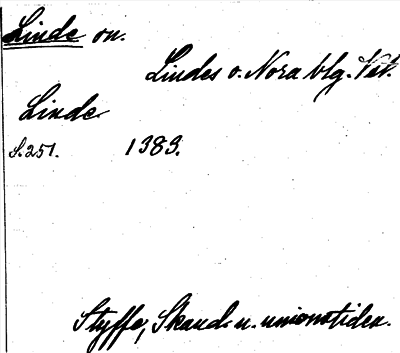 Linde on.
Lindes o. Nora blg. Vstl.
Linde
S. 251. 1383.
Styffe, Skand. u. unionstiden.